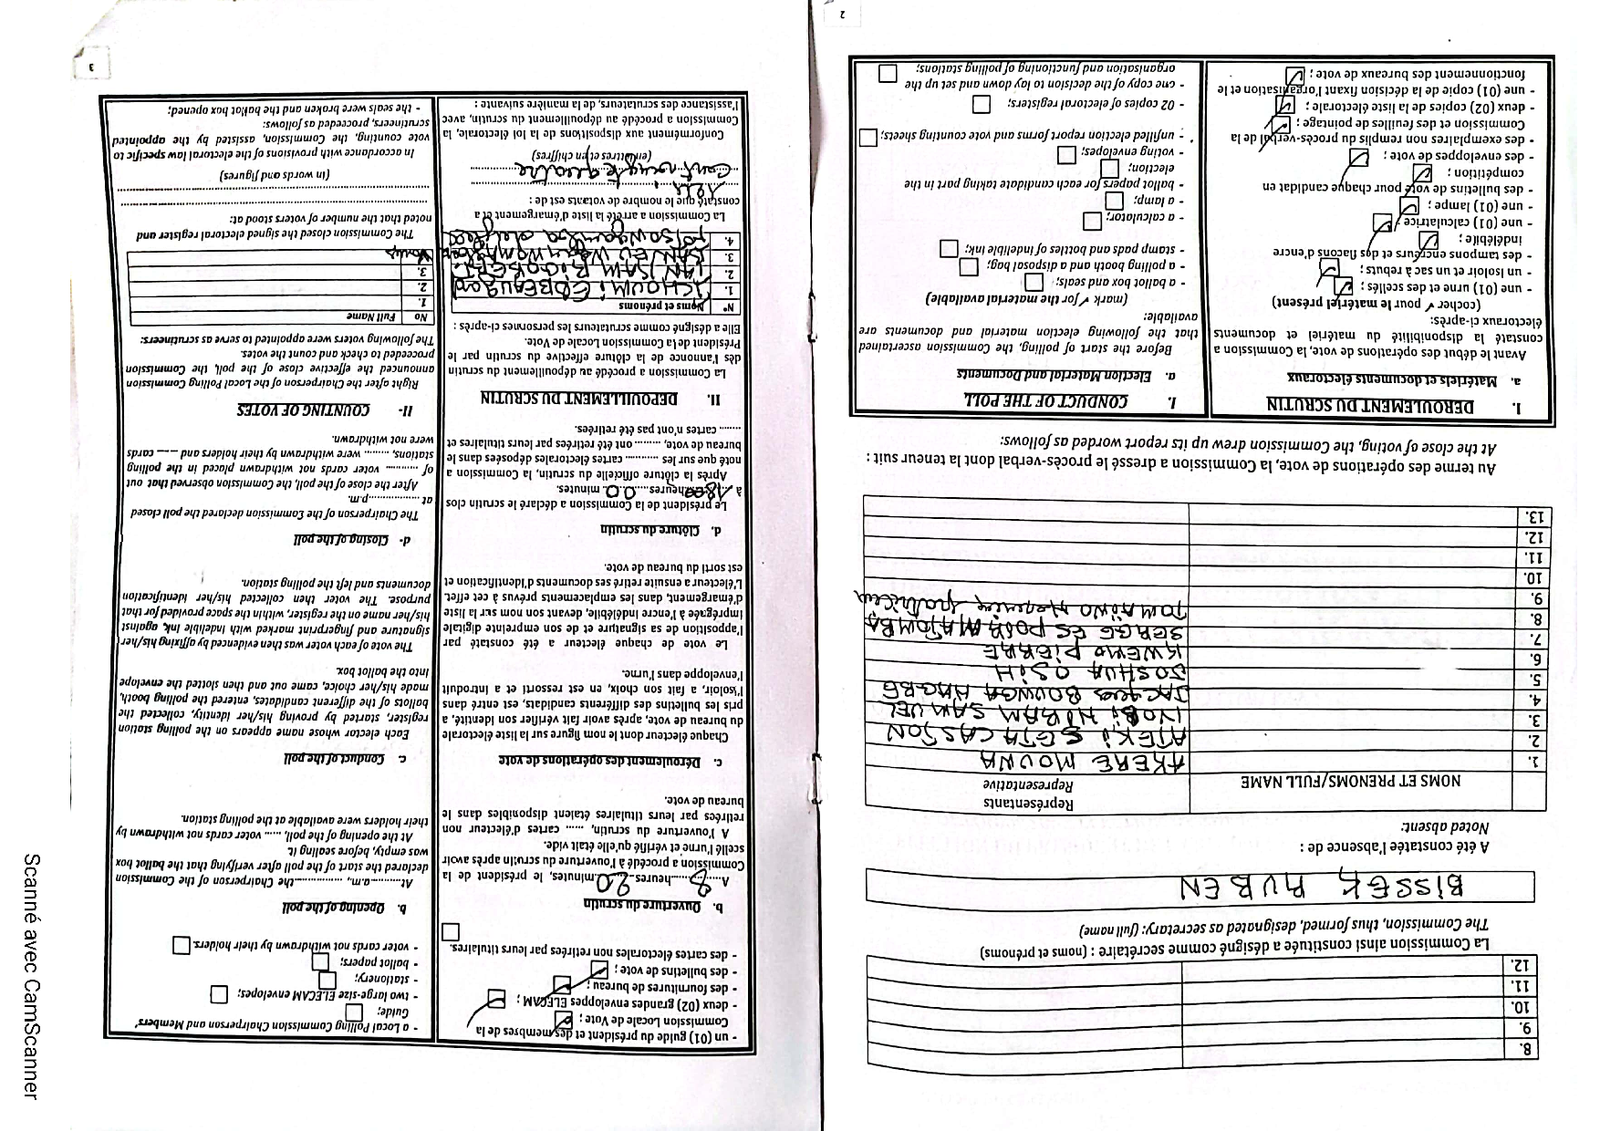 2
8.
9.
10.
11.
12.
La Commission ainsi constituée a désigné comme secrétaire : (noms et prénoms)
The Commission, thus formed, designated as secretary: (full name)
BISSEK RUBEN
A été constatée l'absence de :
Noted absent:
NOMS ET PRENOMS/FULL NAME
Représentants
Representative
1. AKERE MOUNA
2. ATEKI SETA CAXTON
3. NDAM SAMUEL
4. JACQUES BOUNGA
5. JOSHUA OSIH
6. KWEMO PIERRE
7. SERGE ESPOIR MATOMBA
8. TOMAÏNO
9.
10.
11.
12.
13.
Au terme des opérations de vote, la Commission a dressé le procès-verbal dont la teneur suit :
At the close of voting, the Commission drew up its report worded as follows:
I. DEROULEMENT DU SCRUTIN
a. Matériels et documents électoraux
Avant le début des opérations de vote, la Commission a
constaté la disponibilité du matériel et documents
électoraux ci-après:
(cocher ✓ pour le matériel présent)
- une (01) urne et des scellés ;
- un isoloir et un sac à rebuts ;
- des tampons encreurs et des flacons d'encre
indélébile ;
- une (01) calculatrice ;
- une (01) lampe ;
- des bulletins de vote pour chaque candidat en
compétition ;
- des enveloppes de vote ;
- des exemplaires non remplis du procès-verbal de la
Commission et des feuilles de pointage ;
- deux (02) copies de la liste électorale ;
- une (01) copie de la décision fixant l'organisation et le
fonctionnement des bureaux de vote ;
I. CONDUCT OF THE POLL
a. Election Material and Documents
Before the start of polling, the Commission ascertained
that the following election material and documents are
available:
(mark ✓ for the material available)
- a ballot box and seals;
- a polling booth and a disposal bag;
- stamp pads and bottles of indelible ink;
- a calculator;
- a lamp;
- ballot papers for each candidate taking part in the
election;
- voting envelopes;
- unfilled election report forms and vote counting sheets;
- 02 copies of electoral registers;
- one copy of the decision to lay down and set up the
organisation and functioning of polling stations;
3
- un (01) guide du président et des membres de la
Commission Locale de Vote ;
- deux (02) grandes enveloppes ELECAM ;
- des fournitures de bureau ;
- des bulletins de vote ;
- des cartes électorales non retirées par leurs titulaires.
b. Ouverture du scrutin
A 8 heures 20 minutes, le président de la
Commission a procédé à l'ouverture du scrutin après avoir
scellé l'urne et vérifié qu'elle était vide.
A l'ouverture du scrutin, ...... cartes d'électeur non
retirées par leurs titulaires étaient disponibles dans le
bureau de vote.
c. Déroulement des opérations de vote
Chaque électeur dont le nom figure sur la liste électorale
du bureau de vote, après avoir fait vérifier son identité, a
pris les bulletins des différents candidats, est entré dans
l'isoloir, a fait son choix, en est ressorti et a introduit
l'enveloppe dans l'urne.
Le vote de chaque électeur a été constaté par
l'apposition de sa signature et de son empreinte digitale
imprégnée à l'encre indélébile, devant son nom sur la liste
d'émargement, dans les emplacements prévus à cet effet.
L'électeur a ensuite retiré ses documents d'identification et
est sorti du bureau de vote.
d. Clôture du scrutin
Le président de la Commission a déclaré le scrutin clos
à 18 heures 00 minutes.
Après la clôture officielle du scrutin, la Commission a
noté que sur les .......... cartes électorales déposées dans le
bureau de vote, ......... ont été retirées par leurs titulaires et
....... cartes n'ont pas été retirées.
II. DEPOUILLEMENT DU SCRUTIN
La Commission a procédé au dépouillement du scrutin
dès l'annonce de la clôture effective du scrutin par le
Président de la Commission Locale de Vote.
Elle a désigné comme scrutateurs les personnes ci-après :
N° Noms et prénoms
1. TCHOUMI
2. SAM RIGOBERT
3.
4.
La Commission a arrêté la liste d'émargement et a
constaté que le nombre de votants est de :
(en lettres et en chiffres)
Conformément aux dispositions de la loi électorale, la
Commission a procédé au dépouillement du scrutin, avec
l'assistance des scrutateurs, de la manière suivante :
- a Local Polling Commission Chairperson and Members'
Guide;
- two large-size ELECAM envelopes;
- stationery;
- ballot papers;
- voter cards not withdrawn by their holders.
b. Opening of the poll
At..........a.m., ...............the Chairperson of the Commission
declared the start of the poll after verifying that the ballot box
was empty, before sealing it.
At the opening of the poll, ...... voter cards not withdrawn by
their holders were available at the polling station.
c. Conduct of the poll
Each elector whose name appears on the polling station
register, started by proving his/her identity, collected the
ballots of the different candidates, entered the polling booth,
made his/her choice, came out and then slotted the envelope
into the ballot box.
The vote of each voter was then evidenced by affixing his/her
signature and fingerprint marked with indelible ink, against
his/her name on the register, within the space provided for that
purpose. The voter then collected his/her identification
documents and left the polling station.
d- Closing of the poll
The Chairperson of the Commission declared the poll closed
at ..................p.m.
After the close of the poll, the Commission observed that out
of .......... voter cards not withdrawn placed in the polling
stations, ........ were withdrawn by their holders and ---- cards
were not withdrawn.
II- COUNTING OF VOTES
Right after the Chairperson of the Local Polling Commission
announced the effective close of the poll, the Commission
proceeded to check and count the votes.
The following voters were appointed to serve as scrutineers:
No Full Name
1.
2.
3.
The Commission closed the signed electoral register and
noted that the number of voters stood at:
(in words and figures)
In accordance with provisions of the electoral law specific to
vote counting, the Commission, assisted by the appointed
scrutineers, proceeded as follows:
- the seals were broken and the ballot box opened;
Scanné avec CamScanner